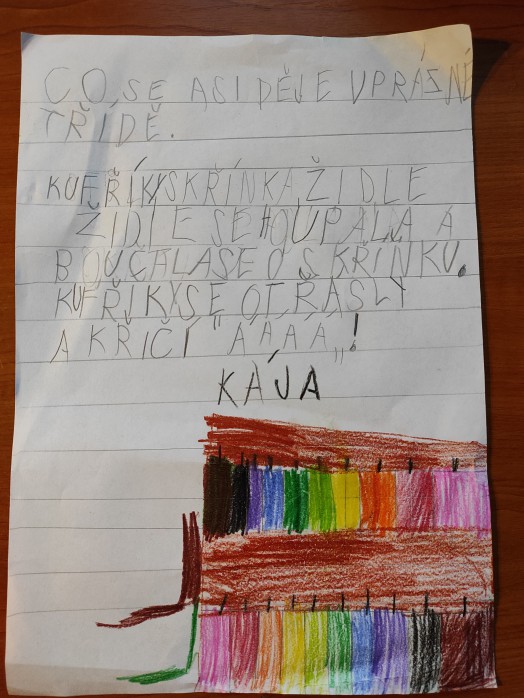 CO SE ASI DĚJE V PRÁZNÉ
TŘÍDĚ.
KUFŘÍKY SKŘÍNKA ŽIDLE
ŽIDLE SE HOUPALA A
BOUCALA SE O SKŘÍŇKU.
KUFŘIKY SE OTŘÁSLY
A KŘIČÍ "ÁÁÁÁ„!
KÁJA